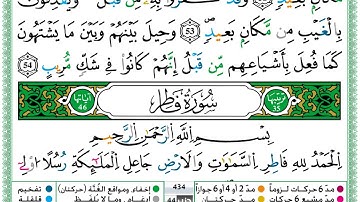 مَّكَانٍۭ بَعِيدٍ ٥٢ وَقَدْ كَفَرُوا۟ بِهِۦ مِن قَبْلُ وَيَقْذِفُونَ
بِٱلْغَيْبِ مِن مَّكَانٍۭ بَعِيدٍ ٥٣ وَحِيلَ بَيْنَهُمْ وَبَيْنَ مَا يَشْتَهُونَ
كَمَا فُعِلَ بِأَشْيَاعِهِم مِّن قَبْلُ إِنَّهُمْ كَانُوا۟ فِى شَكٍّ مُّرِيبٍۭ ٥٤
سُورَةُ فَاطِرٍ
بِسْمِ ٱللَّهِ ٱلرَّحْمَٰنِ ٱلرَّحِيمِ
ٱلْحَمْدُ لِلَّهِ فَاطِرِ ٱلسَّمَٰوَٰتِ وَٱلْأَرْضِ جَاعِلِ ٱلْمَلَٰٓئِكَةِ رُسُلًا أُو۟لِىٓ
مدّ 6 حركات لزوماً مدّ 2 أو 4 أو 6 جوازاً 434 إخفاء، ومواقع الغُنَّة (حركتان) تفخيم
مدّ حركتان إدغام، وما لا يُلفَظ قلقلة